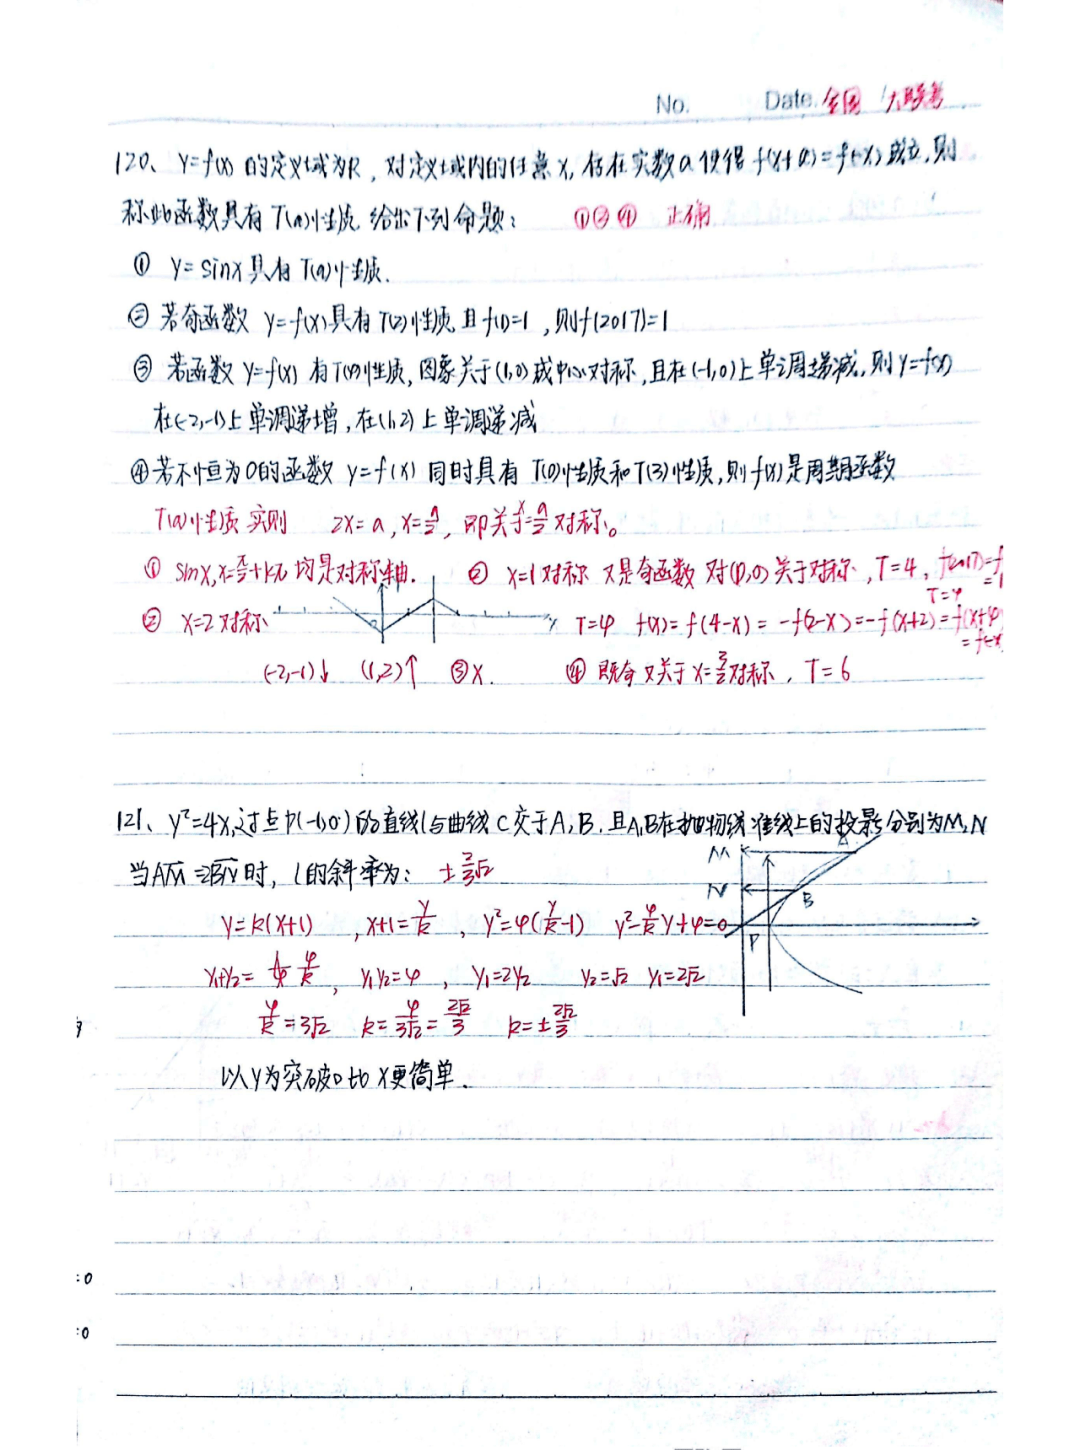 No.    Date. 全国 大联考
120、y=f(x) 的定义域为R，对定义域内的任意x，存在实数a使得f(x+a)=f(-x)成立，则
称此函数具有T(a)性质. 给出下列命题： ①②④ 正确
① y=sinx具有T(a)性质.
② 若奇函数 y=f(x)具有T(2)性质,且f(1)=1，则f(2017)=1
③ 若函数y=f(x)有T(4)性质,图象关于(1,0)成中心对称,且在(-1,0)上单调递减,则y=f(x)
在(-2,-1)上单调递增,在(1,2)上单调递减
④若不恒为0的函数y=f(x)同时具有T(0)性质和T(3)性质,则f(x)是周期函数
T(a)性质 实则 2x=a, x=a/2, 即关于x=a/2对称。
① sinx, x=π/2+kπ 均是对称轴. ② x=1对称 又是奇函数 对(0,0)关于对称，T=4, f(2017)=f
=1
T=4
② x=2对称 2 x T=4 f(x)=f(4-x)=-f(2-x)=-f(x+2)=f(x+4)
=f(-x
(-2,-1)↓ (1,2)↑ ③X. ④ 既奇又关于x=3/2对称，T=6
121、y²=4x,过点P(-1,0)的直线l与曲线C交于A,B.且A,B在抛物线准线上的投影分别为M,N
当AM=2BN时，l的斜率为： ±2/3√2
M A
N B
P
y=k(x+1) , x+1=y/k , y²=4(y/k-1) y²-4/k y+4=0
y₁+y₂= 4/k , y₁y₂=4 , y₁=2y₂ y₂=√2 y₁=2√2
4/k=3√2 k=4/3√2=2√2/3 k=±2√2/3
以y为突破口比x更简单.
:0
:0